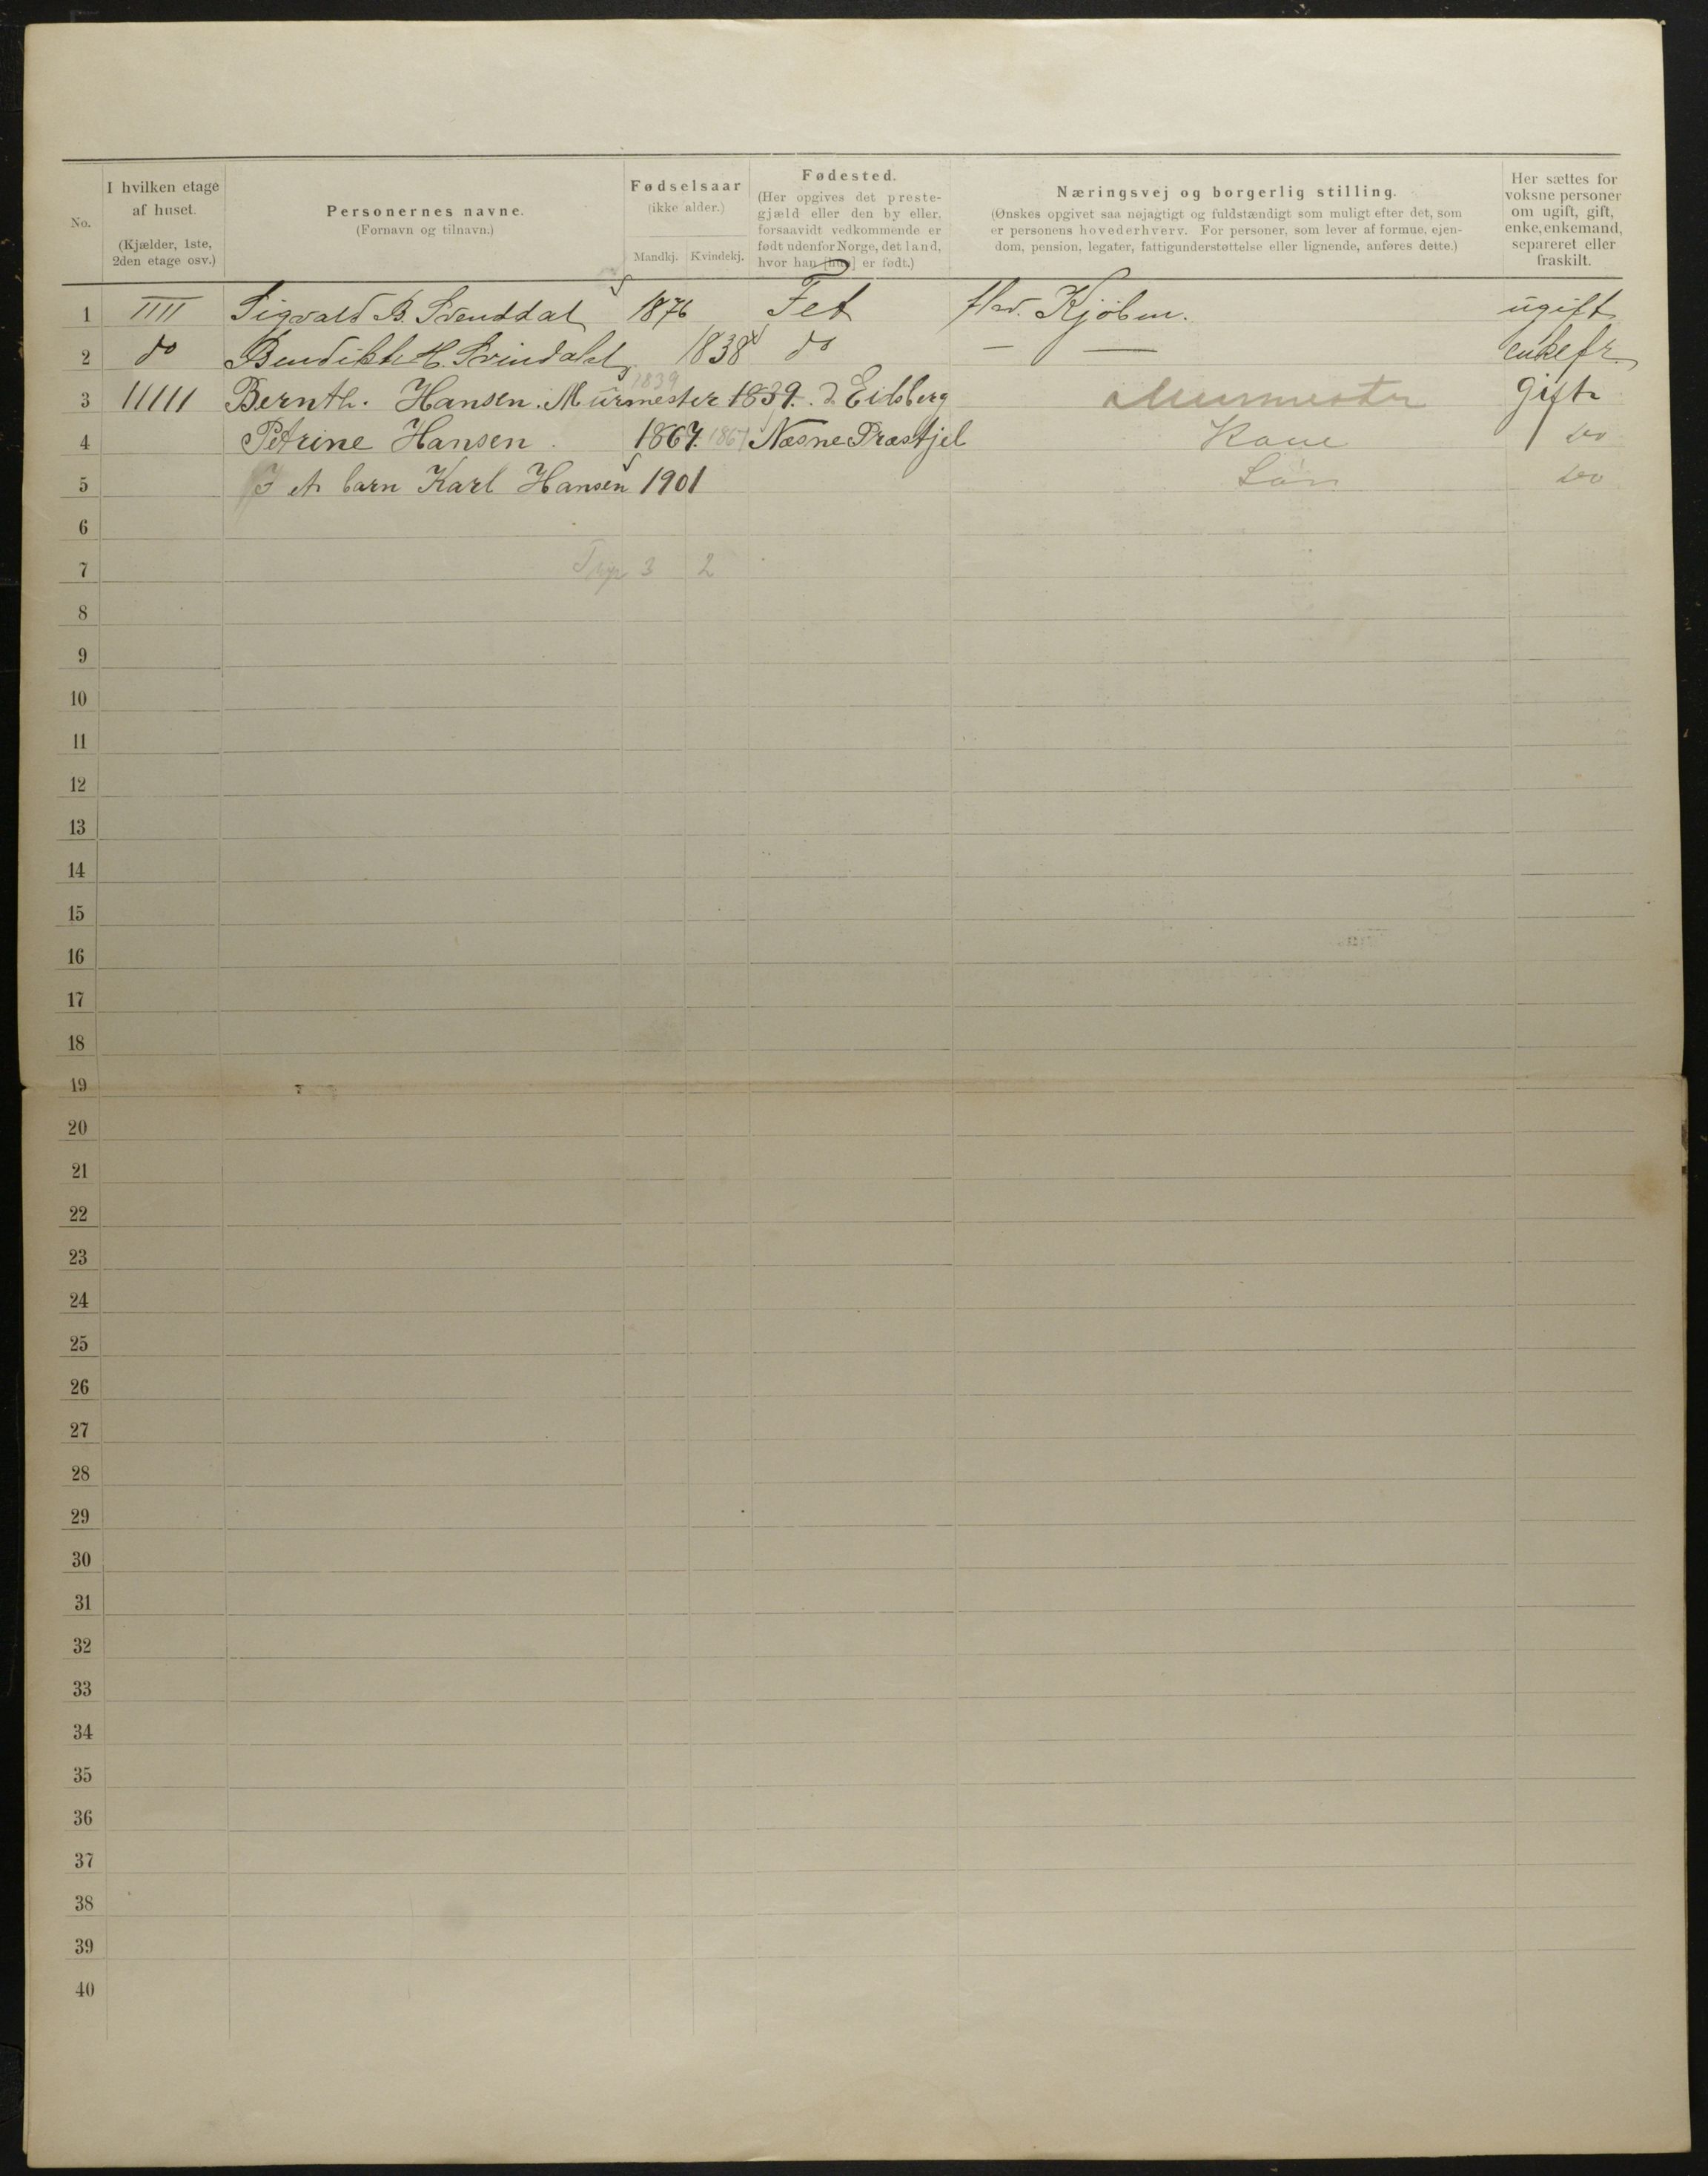 No.
I hvilken etage
af huset.
(Kjælder, 1ste,
2den etage osv.)
Personernes navne.
(Fornavn og tilnavn.)
Fødselsaar
(ikke alder.)
Mandkj. Kvindekj.
Fødested.
(Her opgives det preste-
gjæld eller den by eller,
forsaavidt vedkommende er
født udenfor Norge, det land,
hvor han [hun] er født.)
Næringsvej og borgerlig stilling.
(Ønskes opgivet saa nøjagtigt og fuldstændigt som muligt efter det, som
er personens hovederhverv. For personer, som lever af formue, ejen-
dom, pension, legater, fattigunderstøttelse eller lignende, anføres dette.)
Her sættes for
voksne personer
om ugift, gift,
enke, enkemand,
separeret eller
fraskilt.
1 IIII Sigvald B. 1876 Fet Kjøbm. ugift
2 do H. Svindahl 1838 do — — enkefr.
1839
3 IIIII Bernth. Hansen. Murmester 1839. Eidsberg Murmester Gift
4 Petrine Hansen. 1867. 1867 Næsne Præstjel Kone do
5 et barn Karl Hansen 1901 Søn do
6
7 3 2
8
9
10
11
12
13
14
15
16
17
18
19
20
21
22
23
24
25
26
27
28
29
30
31
32
33
34
35
36
37
38
39
40